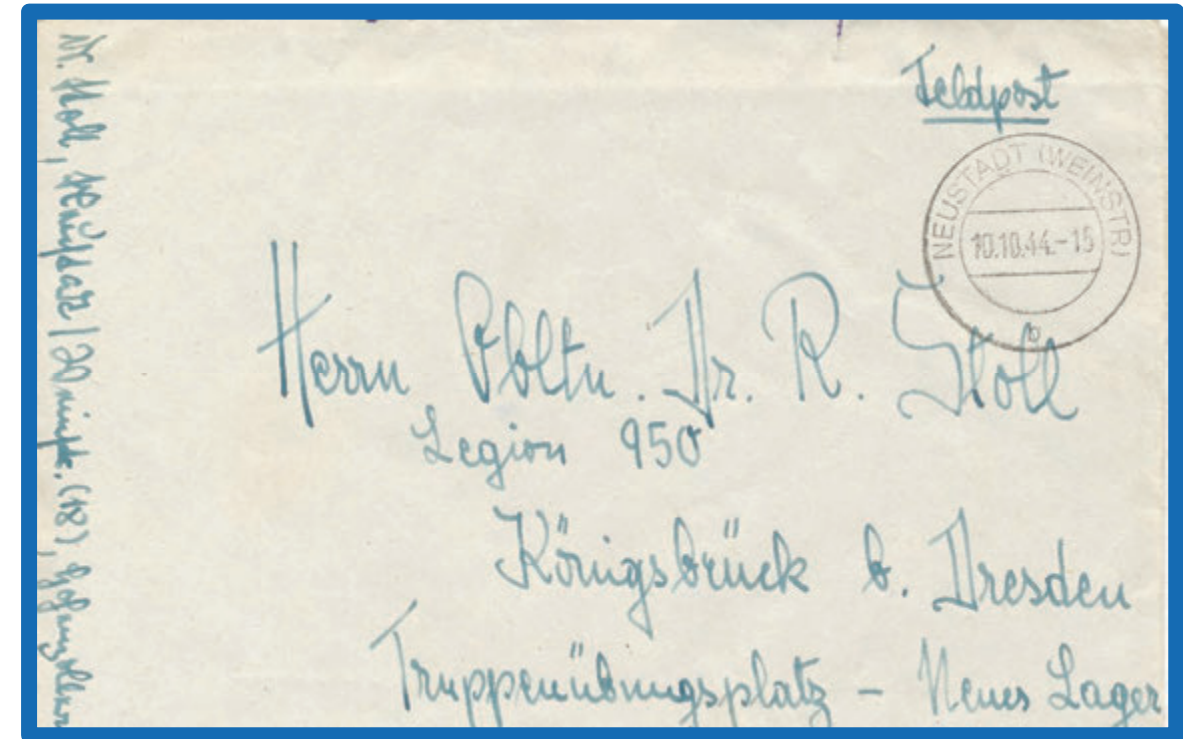 Feldpost
NEUSTADT (WEINSTR)
10.10.44.-15
b
Herrn Obltn. Dr. R. Stoll
Legion 950
Königsbrück b. Dresden
Truppenübungsplatz - Neues Lager
Stoll, Neustadt / Weinstr. (18),